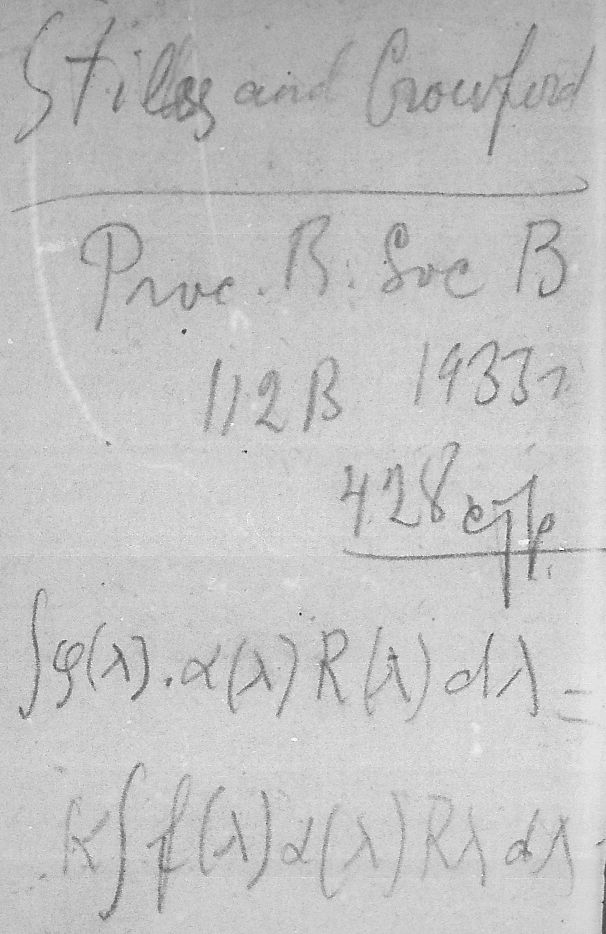 Stiles and Crowford
Proc. R. Soc B
112 B 1933 г
428 стр.
∫φ(λ).α(λ) R(λ) dλ =
K∫f(λ)α(λ) Rλ dλ